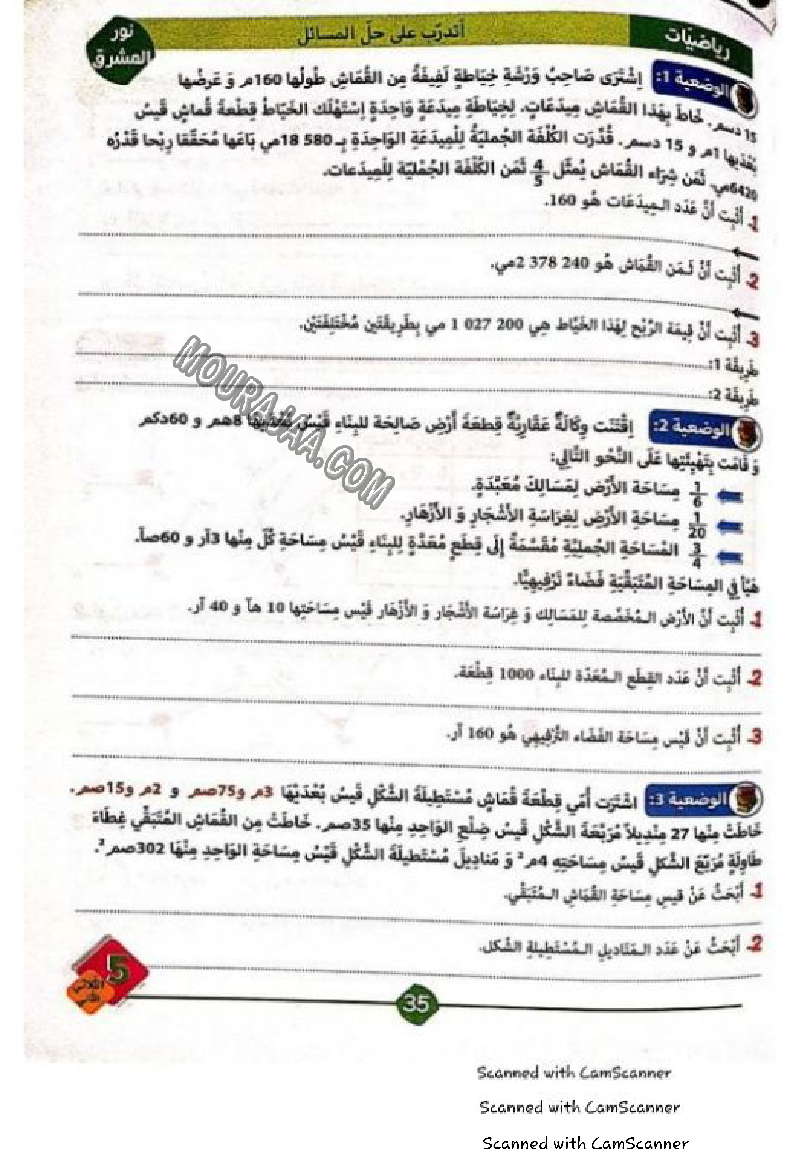 رياضيّات
أتدرّب على حلّ المسائل
نور المشرق
الوضعية 1: اِشْتَرَى صَاحِبُ وَرْشَةِ خِيَاطَةٍ لَفِيفَةً مِن القُمَاشِ طُولُها 160م وَ عَرضُها
15 دسم. خَاطَ بِهَذا القُمَاشِ مِيدَعَاتٍ. لِخِيَاطَةِ مِيدَعَةٍ وَاحِدَةٍ اِسْتَهْلَكَ الخَيَّاطُ قِطعَةَ قُماشٍ قَيسُ
بُعْدَيها 1م و 15 دسم. قُدِّرَت الكُلْفَة الجُمليّةُ لِلْمِيدَعَةِ الوَاحِدَةِ بِـ 580 18مي بَاعَها مُحَقِّقا رِبْحا قَدْرُه
6420مي. ثَمَن شِرَاء القُمَاش يُمثّل 4/5 ثَمَن الكُلْفَة الجُمْليّة لِلْمِيدَعات.
1ـ أثْبِت أنَّ عَدَد الـمِيدَعَات هُو 160.
2ـ أثْبِت أنَّ ثَـمَن القُمَاش هُو 240 378 2مي.
3ـ أثْبِت أنَّ قِيمَة الرِّبْح لِهَذا الخَيَّاط هِي 200 027 1 مي بِطَرِيقَتَين مُخْتَلِفَتَيْن.
طَرِيقَة 1:
طَرِيقَة 2:
MOURAJAA.COM
الوضعية 2: اِقْتَنَت وِكَالَةٌ عَقَّارِيَّةٌ قِطعَةَ أَرْضٍ صَالِحَة للبِنَاءِ قَيْسُ بُعْدَيْهَا 8هم و 60دكم
وَ قَامَت بِتَهْيِئَتِها عَلَى النَّحْوِ التَّالِي:
1/6 مِسَاحَة الأَرْض لِمَسَالِكَ مُعَبَّدَةٍ.
1/20 مِسَاحَةِ الأَرْضِ لِغِرَاسَةِ الأَشْجَارِ وَ الأَزْهَارِ.
3/4 المَسَاحَةِ الجُمليّةِ مُقَسَّمَةً إلَى قِطَعٍ مُعَدَّةٍ لِلبِنَاءِ قَيْسُ مِسَاحَةِ كُلّ مِنْها 3آر و 60صآ.
هَيَّأ في المِسَاحَةِ المُتَبَقِّيَةِ فَضَاءً تَرْفِيهِيًّا.
1ـ أَثْبِت أنَّ الأَرْض الـمُخَصَّصة لِلمَسَالِك وَ غِرَاسَة الأَشْجَار وَ الأَزْهَار قَيْس مِسَاحَتِها 10 هآ و 40 آر.
2ـ أَثْبِت أنَّ عَدَد القِطَع الـمُعَدَّة للبِنَاء 1000 قِطْعَة.
3ـ أَثْبِت أنَّ قَيْس مِسَاحَة الفَضَاء التَّرْفِيهِي هُو 160 آر.
الوضعية 3: اِشْتَرَت أُمّي قِطْعَةَ قُمَاشٍ مُسْتَطِيلَةَ الشَّكْلِ قَيسُ بُعْدَيْهَا 3م و75صم و 2م و15صم.
خَاطَتْ مِنْها 27 مِنْدِيلاً مُرَبَّعَةَ الشَّكْلِ قَيسُ ضِلْعِ الوَاحِدِ مِنْها 35صم. خَاطَتْ مِن القُمَاشِ المُتَبَقِّي غِطَاءَ
طَاوِلَةٍ مُرَبّعَ الشَّكلِ قَيسُ مِسَاحَتِهِ 4م² وَ مَنادِيلَ مُسْتَطيلَةَ الشَّكْلِ قَيْسُ مِسَاحَةِ الوَاحِدِ مِنْهَا 302صم².
1ـ أَبْحَثُ عَنْ قَيسِ مِسَاحَةِ القُمَاشِ الـمُتَبَقِّي.
2ـ أَبْحَثُ عَنْ عَدَدِ الـمَنَادِيلِ الـمُسْتَطِيلَةِ الشَّكل.
5
الثلاثي الثاني
35
Scanned with CamScanner
Scanned with CamScanner
Scanned with CamScanner